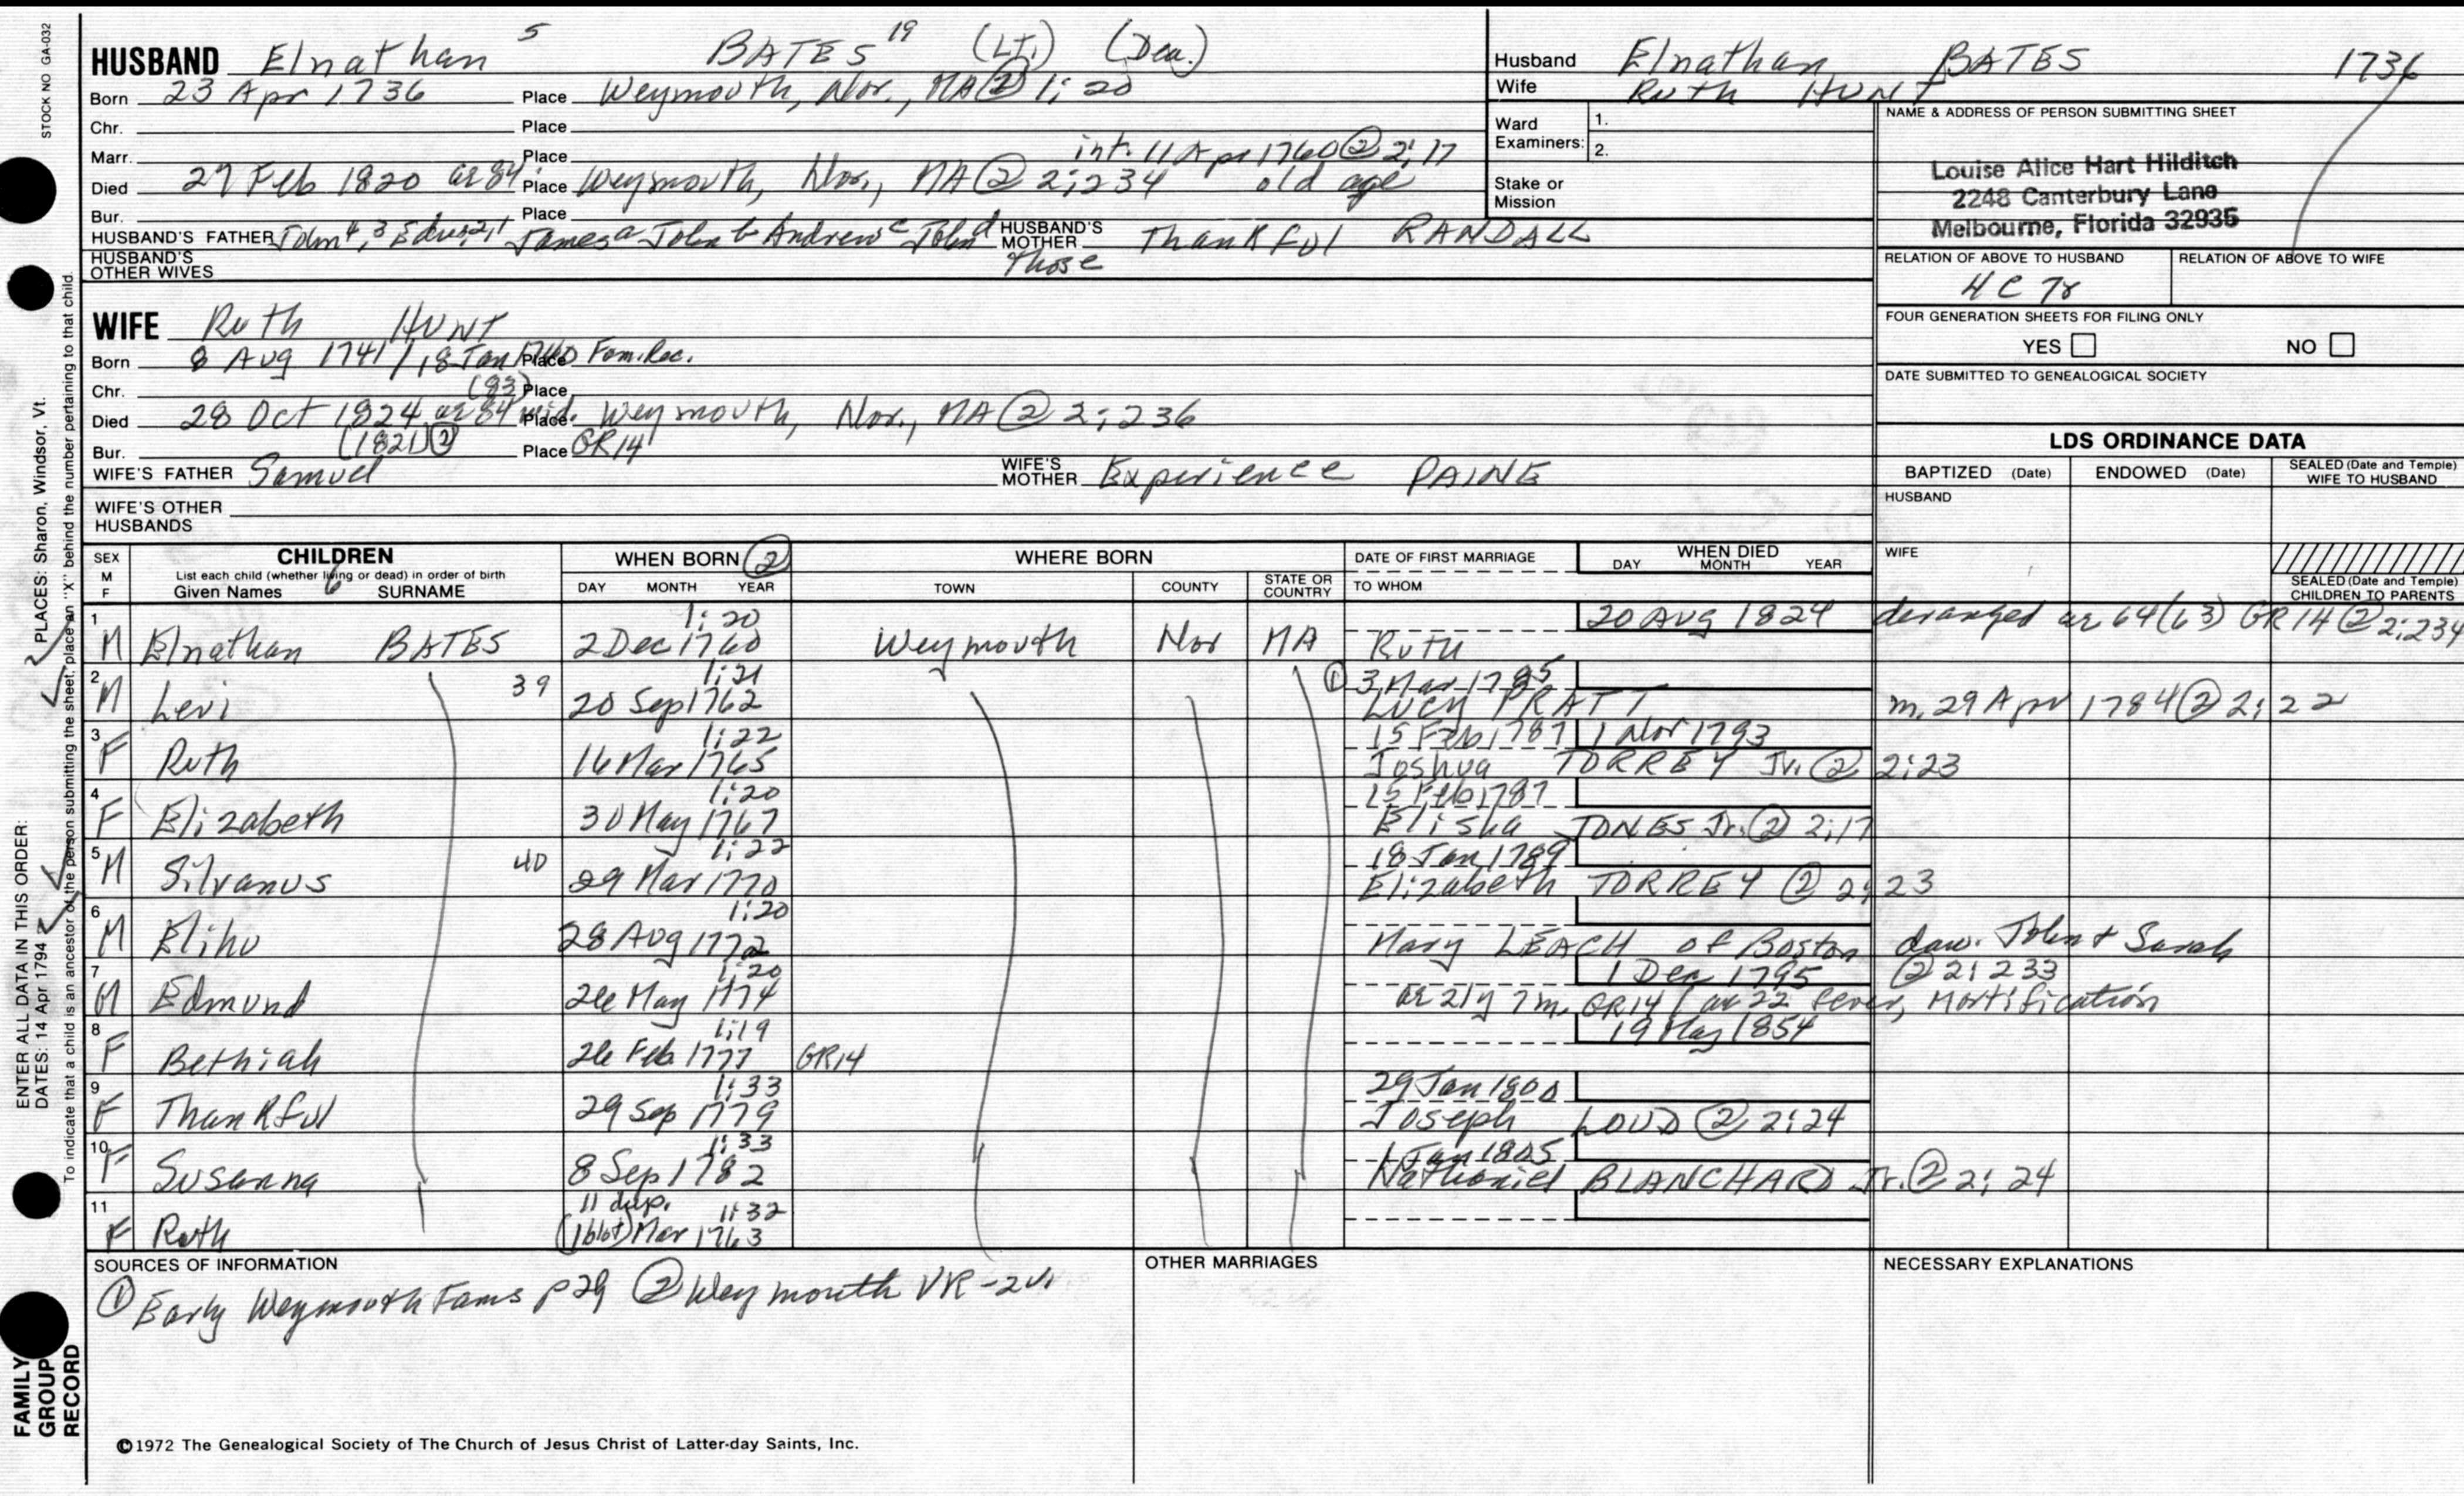 STOCK NO GA-032
HUSBAND Elnathan 5 BATES 19 (Lt.) (Dea.)
Born 23 Apr 1736 Place Weymouth, Nor., MA ② 1:20
Chr. Place
Marr. Place int. 11 Apr 1760 ② 2:17
Died 27 Feb 1820 ae 84 Place Weymouth, Nor., MA ② 2:234 old age
Bur. Place
HUSBAND'S FATHER John 4, 3 Edw. 2,1 James a John b Andrew c John d HUSBAND'S MOTHER Thankful RANDALL
HUSBAND'S OTHER WIVES Those
WIFE Ruth HUNT
Born 8 Aug 1741 / 18 Jan 1740 Place Fam. Rec.
Chr. (83) Place
Died 28 Oct 1824 ae 84 wid. Place Weymouth, Nor., MA ② 2:236
Bur. (1821) ② Place GR14
WIFE'S FATHER Samuel WIFE'S MOTHER Experience PAINE
WIFE'S OTHER HUSBANDS
Husband Elnathan BATES 1736
Wife Ruth HUNT
Ward Examiners: 1. 2.
Stake or Mission
NAME & ADDRESS OF PERSON SUBMITTING SHEET
Louise Alice Hart Hilditch
2248 Canterbury Lane
Melbourne, Florida 32935
RELATION OF ABOVE TO HUSBAND RELATION OF ABOVE TO WIFE
4C 7r
FOUR GENERATION SHEETS FOR FILING ONLY
YES NO
DATE SUBMITTED TO GENEALOGICAL SOCIETY
LDS ORDINANCE DATA
BAPTIZED (Date) ENDOWED (Date) SEALED (Date and Temple) WIFE TO HUSBAND
HUSBAND
WIFE
SEALED (Date and Temple) CHILDREN TO PARENTS
SEX M F CHILDREN WHEN BORN ② WHERE BORN DATE OF FIRST MARRIAGE WHEN DIED
List each child (whether living or dead) in order of birth
Given Names SURNAME DAY MONTH YEAR TOWN COUNTY STATE OR COUNTRY TO WHOM DAY MONTH YEAR
1 1:20 20 Aug 1824 deranged ae 64 (63) GR14 ② 2:234
M Elnathan BATES 2 Dec 1760 Weymouth Nor MA Ruth
2 39 1:21 ① 3 Mar 1785
M Levi 20 Sep 1762 Lucy PRATT m. 29 Apr 1784 ② 2:22
3 1:22 15 Feb 1787 1 Nov 1793
F Ruth 16 Mar 1765 Joshua TORREY Jr. ② 2:23
4 1:20 15 Feb 1787
F Elizabeth 30 May 1767 Elisha JONES Jr. ② 2:17
5 40 1:22 18 Jan 1789
M Silvanus 29 Mar 1770 Elizabeth TORREY ② 2:23
6 1:20
M Elihu 28 Aug 1772 Mary LEACH of Boston dau. John + Sarah
7 1:20 1 Dec 1795 ② 2:233
M Edmund 26 May 1774 ae 21y 7m. GR14 / ae 22 fever, Mortification
8 1:19 19 May 1854
F Bethiah 26 Feb 1777 GR14
9 1:33 29 Jan 1800
F Thankful 29 Sep 1779 Joseph LOUD ② 2:24
10 1:33 1 Jan 1805
F Susanna 8 Sep 1782 Nathaniel BLANCHARD Jr. ② 2:24
11 11 dup. 1:32
F Ruth (1 blot) Mar 1763
SOURCES OF INFORMATION
① Early Weymouth Fams p 29 ② Weymouth VR - 2v.
OTHER MARRIAGES
NECESSARY EXPLANATIONS
©1972 The Genealogical Society of The Church of Jesus Christ of Latter-day Saints, Inc.
ENTER ALL DATA IN THIS ORDER:
DATES: 14 Apr 1794 PLACES: Sharon, Windsor, Vt.
To indicate that a child is an ancestor of the person submitting the sheet, place an "X" behind the number pertaining to that child.
FAMILY GROUP RECORD